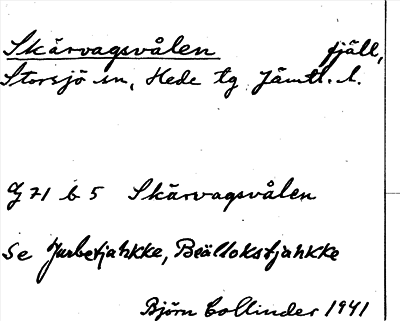 Skärvagsvålen fjäll,
Storsjö sn, Hede tg Jämtl. l.
G 71 b 5 Skärvagsvålen
Se Jurbetjahkke, Beällokstjahkke
Björn Collinder 1941